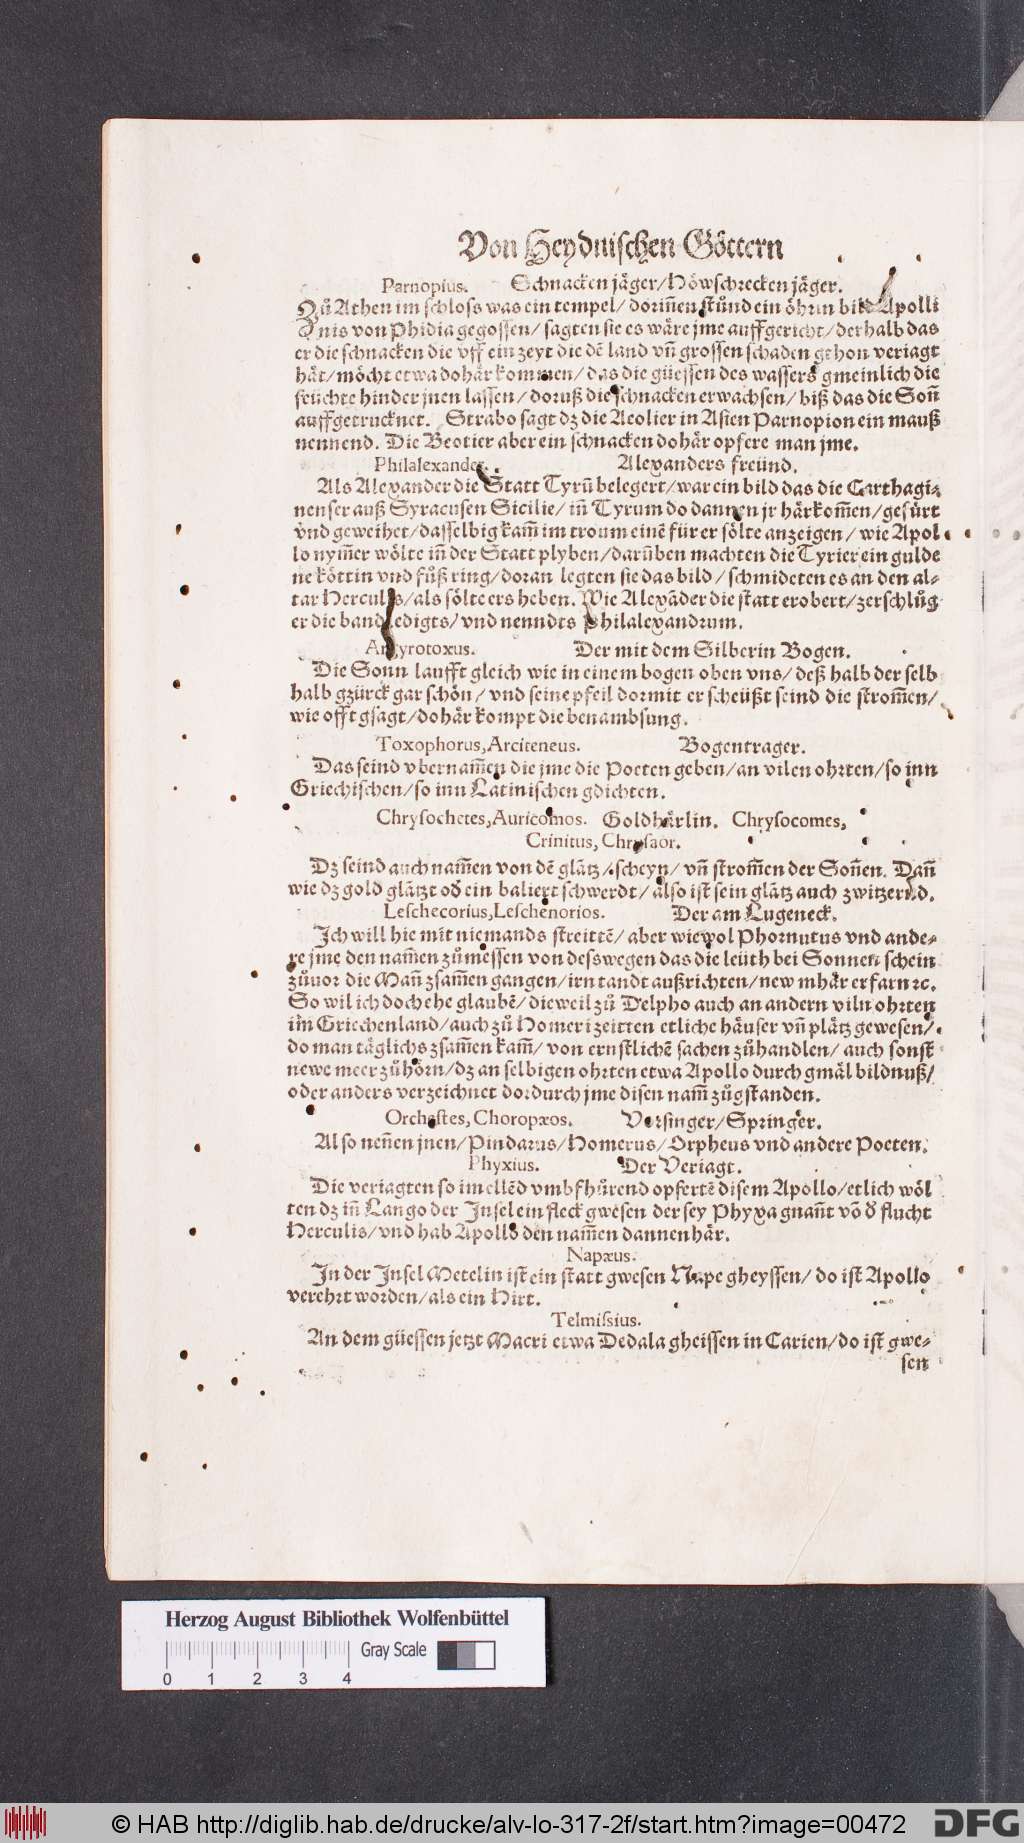 Von Heydnischen Göttern
Parnopius. Schnacken jäger/Höwschrecken jäger.
Zů Athen im schloss was ein tempel/ dorin̄en stůnd ein öhrin bild Apolli
nis von Phidia gegossen/ sagten sie es wäre jme auffgericht/ derhalb das
er die schnacken die vff ein zeyt die dē land vn̄ grossen schaden gthon veriagt
hät/ möcht etwa dohär kommen/ das die güessen des wassers gmeinlich die
feüchte hinder jnen lassen/ doruß die schnacken erwachsen/ biß das die Son̄
auffgetrucknet. Strabo sagt dz die Aeolier in Asien Parnopion ein mauß
nennend. Die Beotier aber ein schnacken dohär opfere man jme.
Philalexander. Alexanders freünd.
Als Alexander die Statt Tyrū belegert/ war ein bild das die Carthagi-
nenser auß Syracusen Sicilie/ in̄ Tyrum do dannen jr härkom̄en/ gefürt
vnd geweihet/ dasselbig kam̄ im troum einē für er sölte anzeigen/ wie Apol
lo nym̄er wölte in̄ der Statt plyben/ darüben machten die Tyrier ein gulde
ne köttin vnd fůß ring/ doran legten sie das bild/ schmideten es an den al-
tar Herculis/ als sölte ers heben. Wie Alexāder die statt erobert/ zerschlůg
er die band ledigts/ vnd nenndts Philalexandrum.
Argyrotoxus. Der mit dem Silberin Bogen.
Die Sonn laufft gleich wie in einem bogen oben vns/ deß halb der selb
halb gzürck gar schön/ vnd seine pfeil dormit er scheüßt seind die strom̄en/
wie offt gsagt/ dohär kompt die benambsung.
Toxophorus, Arciteneus. Bogentrager.
Das seind vbernam̄en die jme die Poeten geben/ an vilen ohrten/ so inn
Griechischen/ so inn Latinischen gdichten.
Chrysochetes, Auricomos. Goldhärlin. Chrysocomes,
Crinitus, Chrysaor.
Dz seind auch nam̄en von dē glātz/ scheyn/ vn̄ strom̄en der Son̄en. Dan̄
wie dz gold glātzt oð ein baliert schwerdt/ also ist sein glātz auch zwitzernd.
Leschecorius, Leschenorios. Der am Lugeneck.
Ich will hie mit niemands streittē/ aber wiewol Phornutus vnd ande-
re jme den nam̄en zůmessen von desswegen das die leüth bei Sonnen schein
zůuor die Man̄ zsam̄en gangen/ irn tandt außrichten/ new mhär erfarn ꝛc.
So wil ich doch ehe glaubē/ dieweil zů Delpho auch an andern viln ohrten
im Griechenland/ auch zů Homeri zeitten etliche häuser vn̄ plätz gewesen/
do man täglichs zsam̄en kam̄/ von ernstlichē sachen zůhandlen/ auch sonst
newe meer zůhörn/ dz an selbigen ohrten etwa Apollo durch gmäl bildnuß/
oder anders verzeichnet dordurch jme disen nam̄ zůgstanden.
Orchestes, Choropæos. Vorsinger/ Springer.
Also nen̄en jnen/ Pindarus/ Homerus/ Orpheus vnd andere Poeten.
Phyxius. Der Veriagt.
Die veriagten so im ellēd vmbfhürend opfertē disem Apollo/ etlich wöl
ten dz in̄ Lango der Insel ein fleck gwesen der sey Phyxa gnan̄t vō ð flucht
Herculis/ vnd hab Apollo den nam̄en dannenhär.
Napæus.
In der Insel Metelin ist ein statt gwesen Nape gheyssen/ do ist Apollo
verehrt worden/ als ein Hirt.
Telmissius.
An dem güessen jetzt Macri etwa Dedala gheissen in Carien/ do ist gwe-
sen
Herzog August Bibliothek Wolfenbüttel
Gray Scale
0 1 2 3 4
© HAB http://diglib.hab.de/drucke/alv-lo-317-2f/start.htm?image=00472
DFG